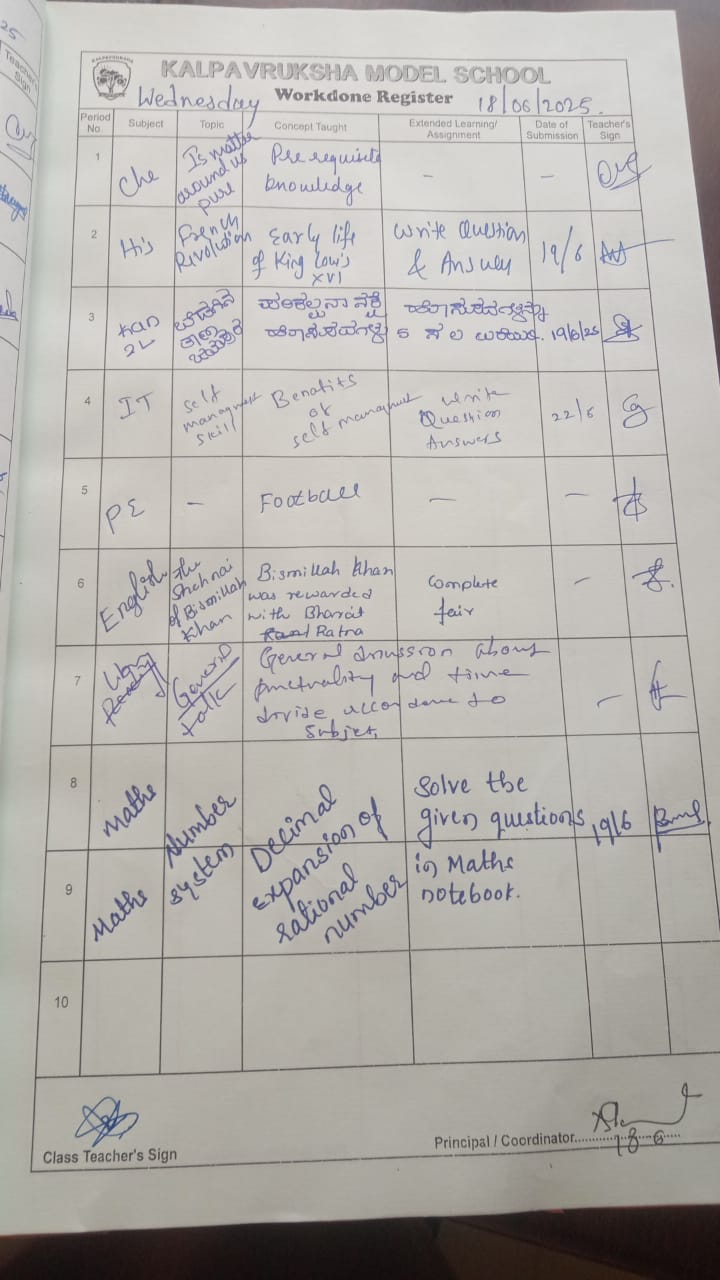 KALPAVRUKSHA MODEL SCHOOL
Wednesday Workdone Register 18/06/2025.
Period No. Subject Topic Concept Taught Extended Learning/ Assignment Date of Submission Teacher's Sign
1 Che Is matter around us pure Pre requisite knowledge - -
2 His French Rivolution Early life of King Louis XVI Write Question & Answer 19/6
3 Kan 2L 19/6/25
4 IT self managment skill Benafits of self managment write Question Answers 22/6
5 PE - Football - -
6 English The Shehnai of Bismillah Khan Bismillah Khan was rewarded with Bharat Ratna Complete fair -
7 General talk General about punctuality and time divide to subject, -
8 Maths Number system Decimal expansion of rational number Solve the given questions in Maths notebook. 19/6
9 Maths
10
Class Teacher's Sign
Principal / Coordinator
18-6